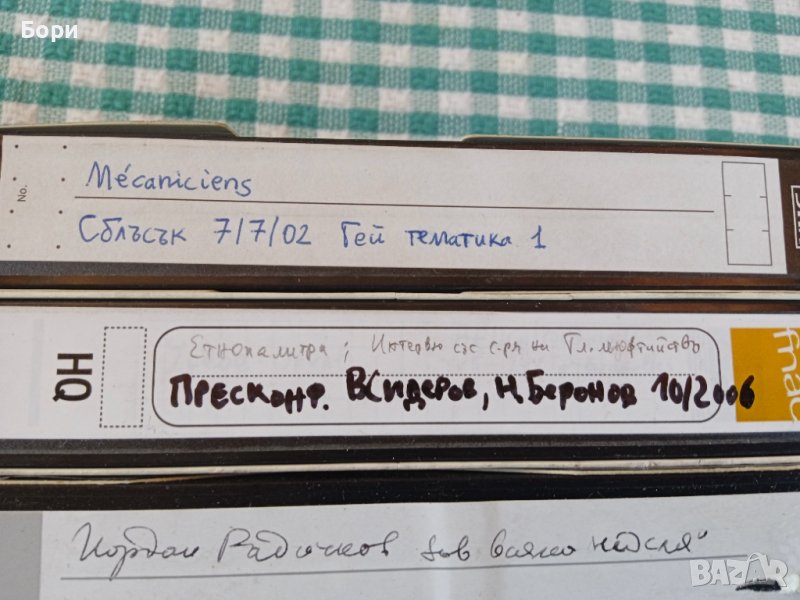 Бори
No.
Mécaniciens
Сблъсък 7/7/02 Гей тематика 1
HQ
Етнопалитра; Интервю със с-ря на Гл. мюфтийство
ПРЕСКОНФ. В.СИДЕРОВ, Н.БЕРОНОВ 10/2006
fnac
Йордан Радичков във всяка неделя"
BAZAR